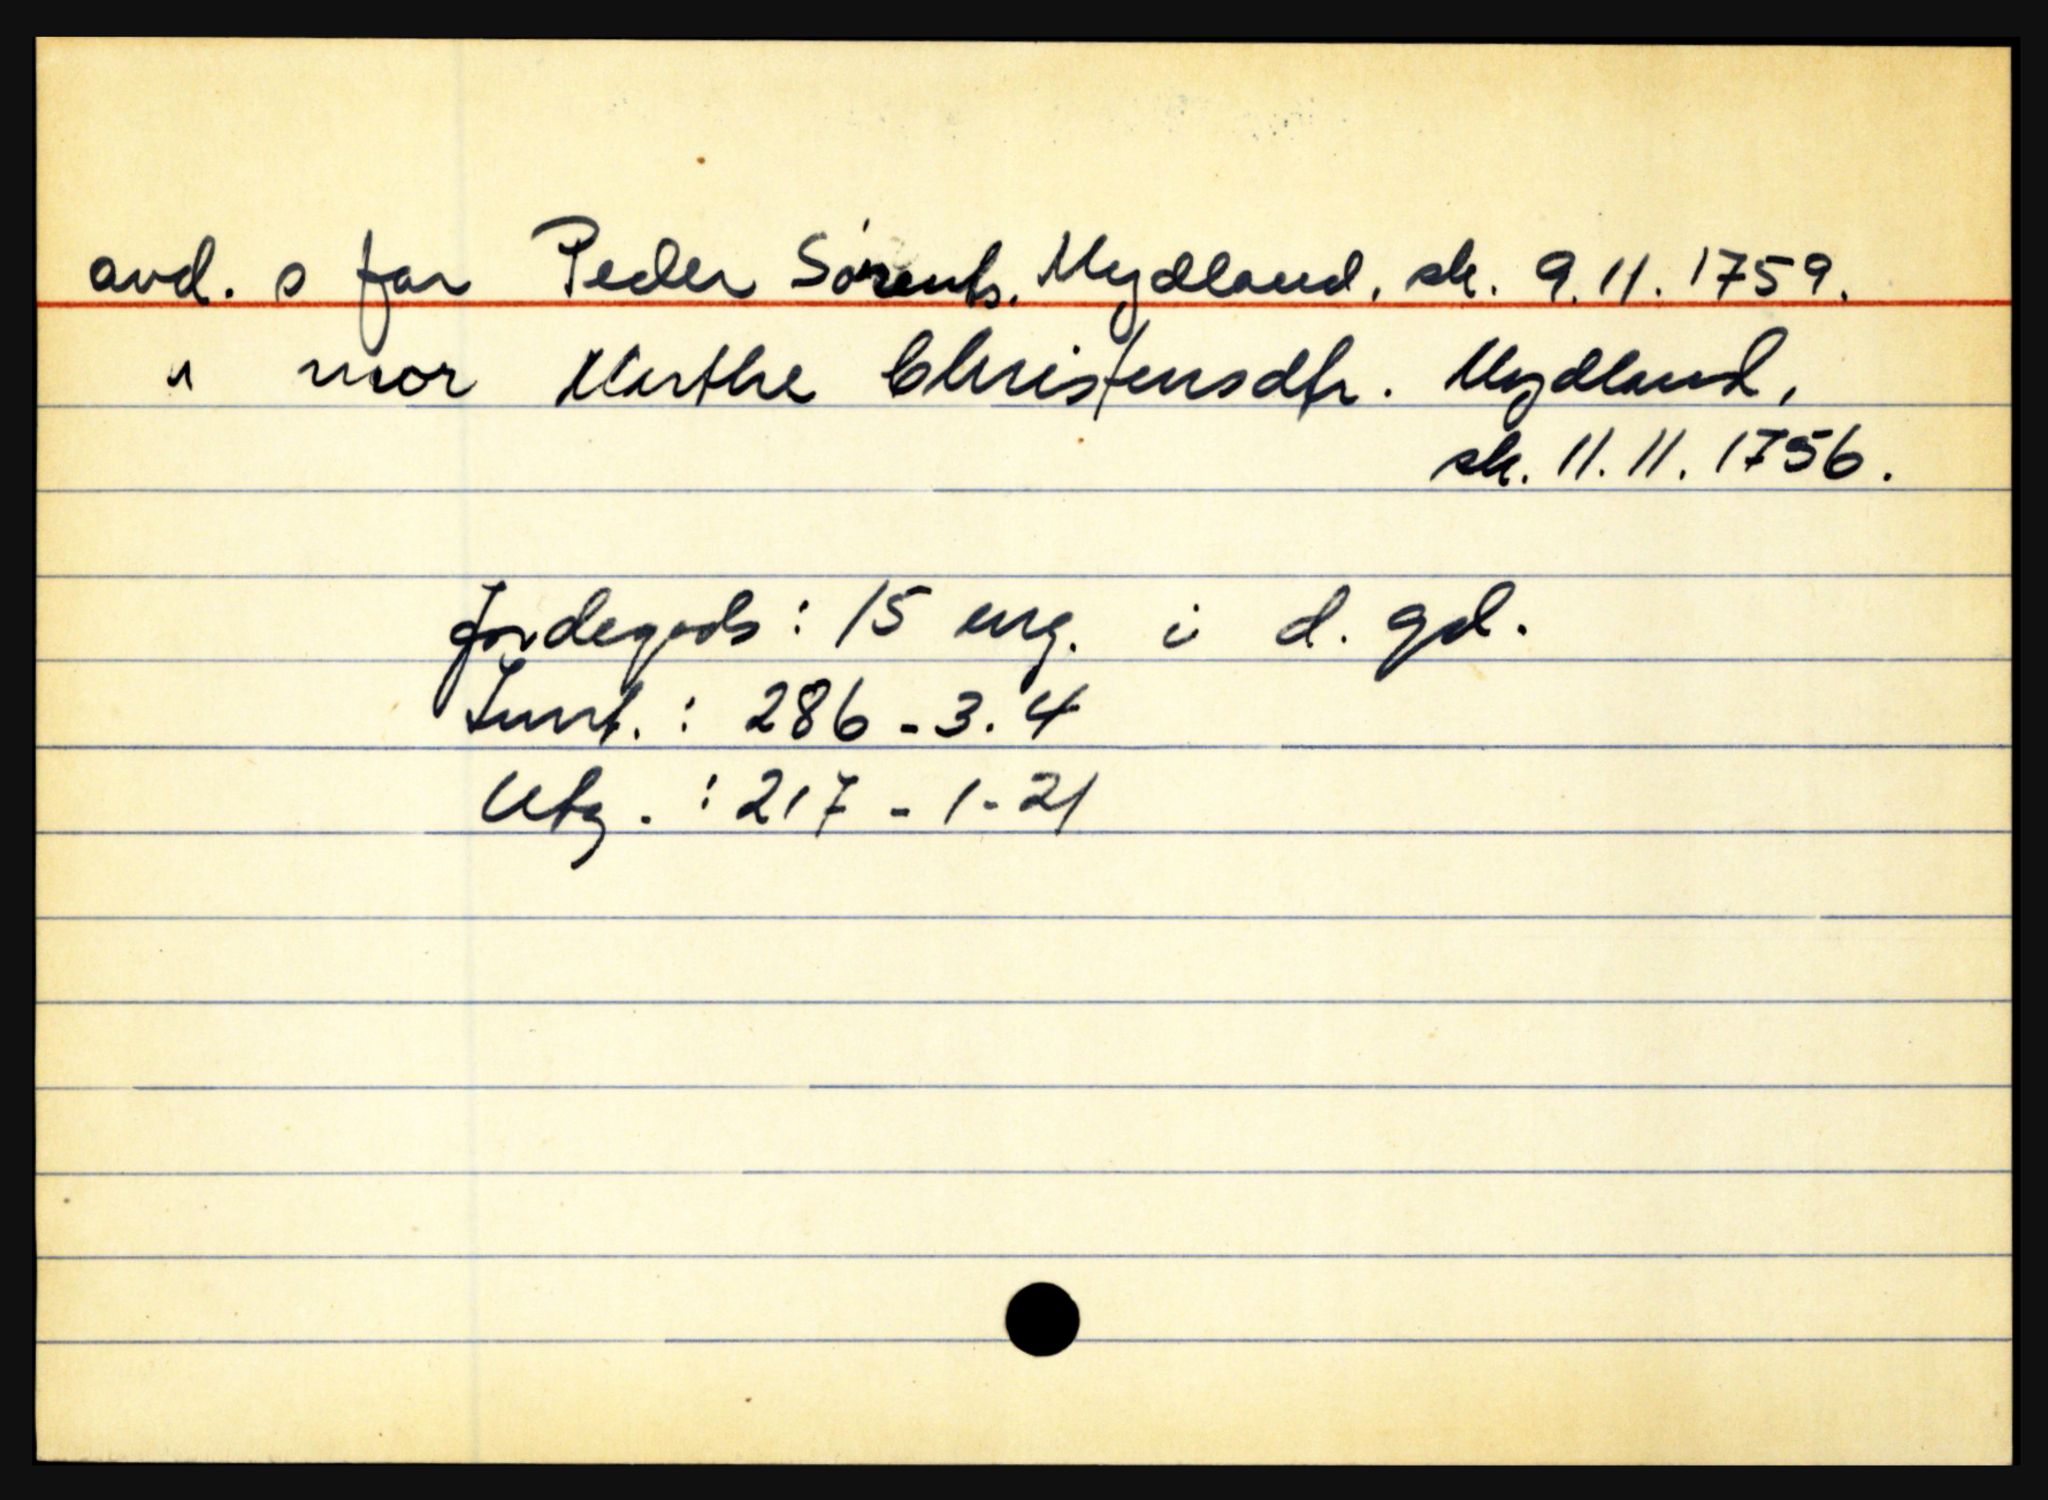 avd. s far Peder Sørents. Mydland, sk. 9.11.1759.
" mor Marthe Christensdtr. Mydland,
sk. 11.11.1756.
Jordegods: 15 eng. i d. gd.
Innt.: 286-3.4
Utg.: 217-1-21